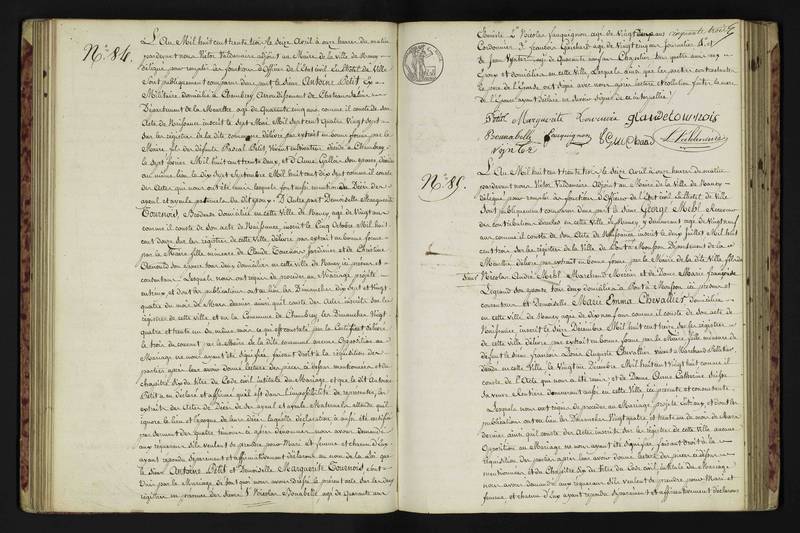 N.° 84.
L'An Mil huit cent trente trois le Seize Avril à onze heures du matin
pardevant nous Victor Valdenaire adjoint au Maire de la Ville de Nancy
délégué pour remplir les fonctions d'Officier de l'Etat civil en l'hôtel de Ville
sont publiquement comparus d'une part le Sieur Antoine Petit Ex-
Militaire domicilié à Chambrey Arrondissement de Chateau Salins
Département de la Meurthe agé de Quarante cinq ans comme il conste de son
Acte de Naissance inscrit le Sept Mai Mil Sept cent Quatre Vingt Sept
sur les registres de la dite commune délivré par extrait en bonne forme par le
Maire, fils de défunts Pascal Petit, Vivant cultivateur, décédé à Chambrey
le Sept février Mil huit cent trente deux, et d'Anne son épouse, décédée
au même lieu, le dix Sept Septembre Mil huit cent dix Sept comme il conste
des Actes qui nous ont été
ayeul et ayeule paternels du dit époux. D'Autre part Demoiselle Marguerite
Tournois, domiciliée en cette Ville de Nancy agée de Vingt ans
comme il conste de son Acte de Naissance, inscrit le Cinq Octobre Mil huit
cent douze sur les registres de cette Ville, délivré par extrait en bonne forme
par le Maire fille mineure de Claude Tournois Jardinier et de Christine
son épouse tous deux domiciliés en cette ville de Nancy ici présens et
consentans. Lesquels nous ont requis de procéder au Mariage projeté
entr'eux, et dont les publications ont eu lieu les Dimanches dix Sept et Vingt
quatre du mois de Mars dernier ainsi qu'il conste des Actes inscrits sur les
registres de cette ville et en la Commune de Chambrey les Dimanches Vingt
quatre et trente un du même mois ce qui est constaté par le Certificat délivré
le trois du courant par le Maire de la dite commune aucune Opposition au
Mariage ne nous ayant été signifiée, faisant droit à la réquisition des
parties après leur avoir donné lecture des pièces ci dessus mentionnées et du
chapitre Six du titre du Code civil intitulé du Mariage, et que le dit Antoine
Petit a en déclaré et affirmé qu'il est dans l'impossibilité de représenter les
extraits des Actes de Décès de ses ayeul et ayeule Maternels attendu qu'il
ignore le lieu et l'époque de leur décès laquelle déclaration a aussi été certifiée
par serment des quatre témoins ci après dénommés nous avons demandé
aux requérans s'ils veulent se prendre pour Mari et femme et chacun d'eux
ayant répondu séparément et affirmativement déclarons au nom de la Loi que
le Sieur Antoine Petit et Demoiselle Marguerite Tournois sont
Unis par le Mariage de tout quoi nous avons dressé le présent acte sur les deux
registres en présence des Sieurs 1.° Nicolas Bonabelle agé de Quarante ans
2.° Nicolas Fauquignon agé de Vingt
Cordonnier 3.° François agé de Vingt cinq ans Journalier 4.° et
de Jean agé de Quarante six ans Chapelier tous quatre amis des
Epoux et domiciliés en cette ville, Lesquels ainsi que les parties contractantes
le père de l'épouse ont signé avec nous après lecture et collation faite la mère
de l'épouse ayant déclaré ne savoir signer de ce interpellée.
Petit Marguerite Tournois glaudetournois
Bonnabelle fauquignon
N.° 85.
L'An Mil huit cent trente trois le Seize Avril à onze heures du matin
pardevant nous Victor Valdenaire Adjoint au Maire de la Ville de Nancy
délégué pour remplir les fonctions d'Officier de l'Etat civil en l'hôtel de Ville
sont publiquement comparus d'une part le Sieur George Mehl
des contributions directes en cette Ville de Nancy y demeurant agé de Vingt neuf
ans comme il conste de son Acte de Naissance inscrit le dix Juillet Mil huit
cent trois sur les registres de la Ville de Pont à Mousson Département de la
Meurthe délivré par extrait en bonne forme par le Maire de la dite Ville, fils de
Sieur Nicolas André Mehl Marchand Mercier et de Dame Marie françoise
Legrand son épouse tous deux domiciliés à Pont à Mousson ici présens et
consentans et Demoiselle Marie Emma Chevallier domiciliée
en cette ville de Nancy agée de dix neuf ans comme il conste de son acte de
Naissance, inscrit le Seize Décembre Mil huit cent treize sur les registres
de cette ville délivré par extrait en bonne forme par le Maire, fille mineure de
défunt le Sieur François Auguste Chevallier vivant Marchand Pelletier,
décédé en cette ville, le Vingt un Décembre Mil huit cent Vingt huit comme il
conste de l'Acte qui nous a été remis, et de Dame Anne Catherine
sa veuve Rentière demeurant aussi en cette Ville ici présente et consentante
Lesquels nous ont requis de procéder au Mariage projeté entr'eux, et dont les
publications ont eu lieu les Dimanches Vingt quatre et trente un du mois de Mars
dernier ainsi qu'il conste des Actes inscrits sur les registres de cette Ville aucune
Opposition au Mariage ne nous ayant été signifiée, faisant droit à la
réquisition des parties après leur avoir donné lecture des pièces ci dessus
mentionnées et du Chapitre Six du Titre du Code civil intitulé du Mariage
nous avons demandé aux requérans s'ils veulent se prendre pour Mari et
femme, et chacun d'eux ayant répondu séparément et affirmativement déclarons